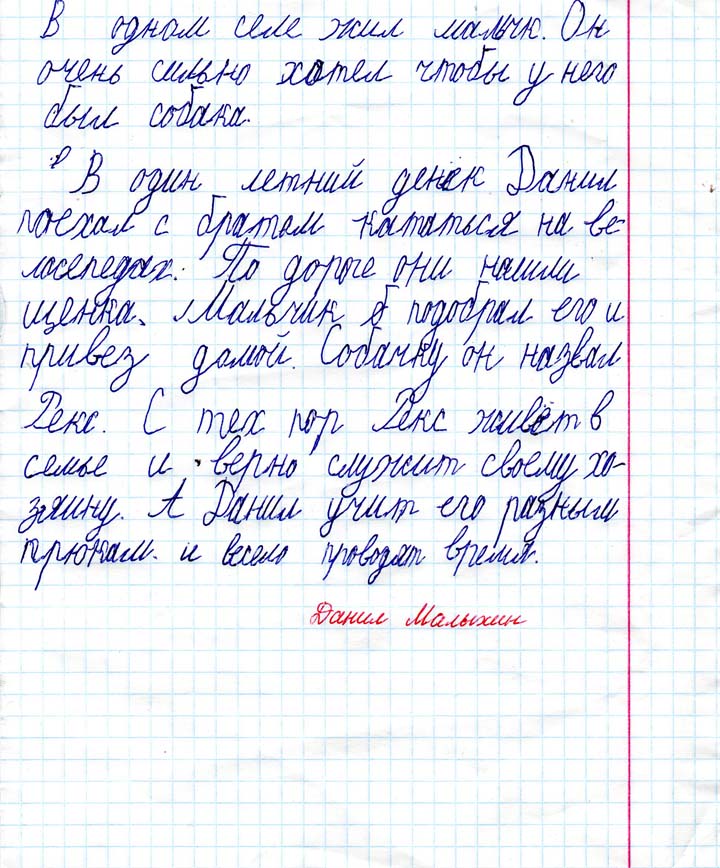 В одном селе жил мальчк. Он
очень сильно хотел чтобы у него
был собака.
В один летний денёк Данил
поехал с братом кататься на ве-
лосепедах. По дороге они нашли
щенка. Мальчик подобрал его и
привез домой. Собачку он назвал
Рекс. С тех пор Рекс живёт в
семье и верно служит своему хо-
зяину. А Данил учит его разным
трюкам и весело проводят время.
Данил Малыхин